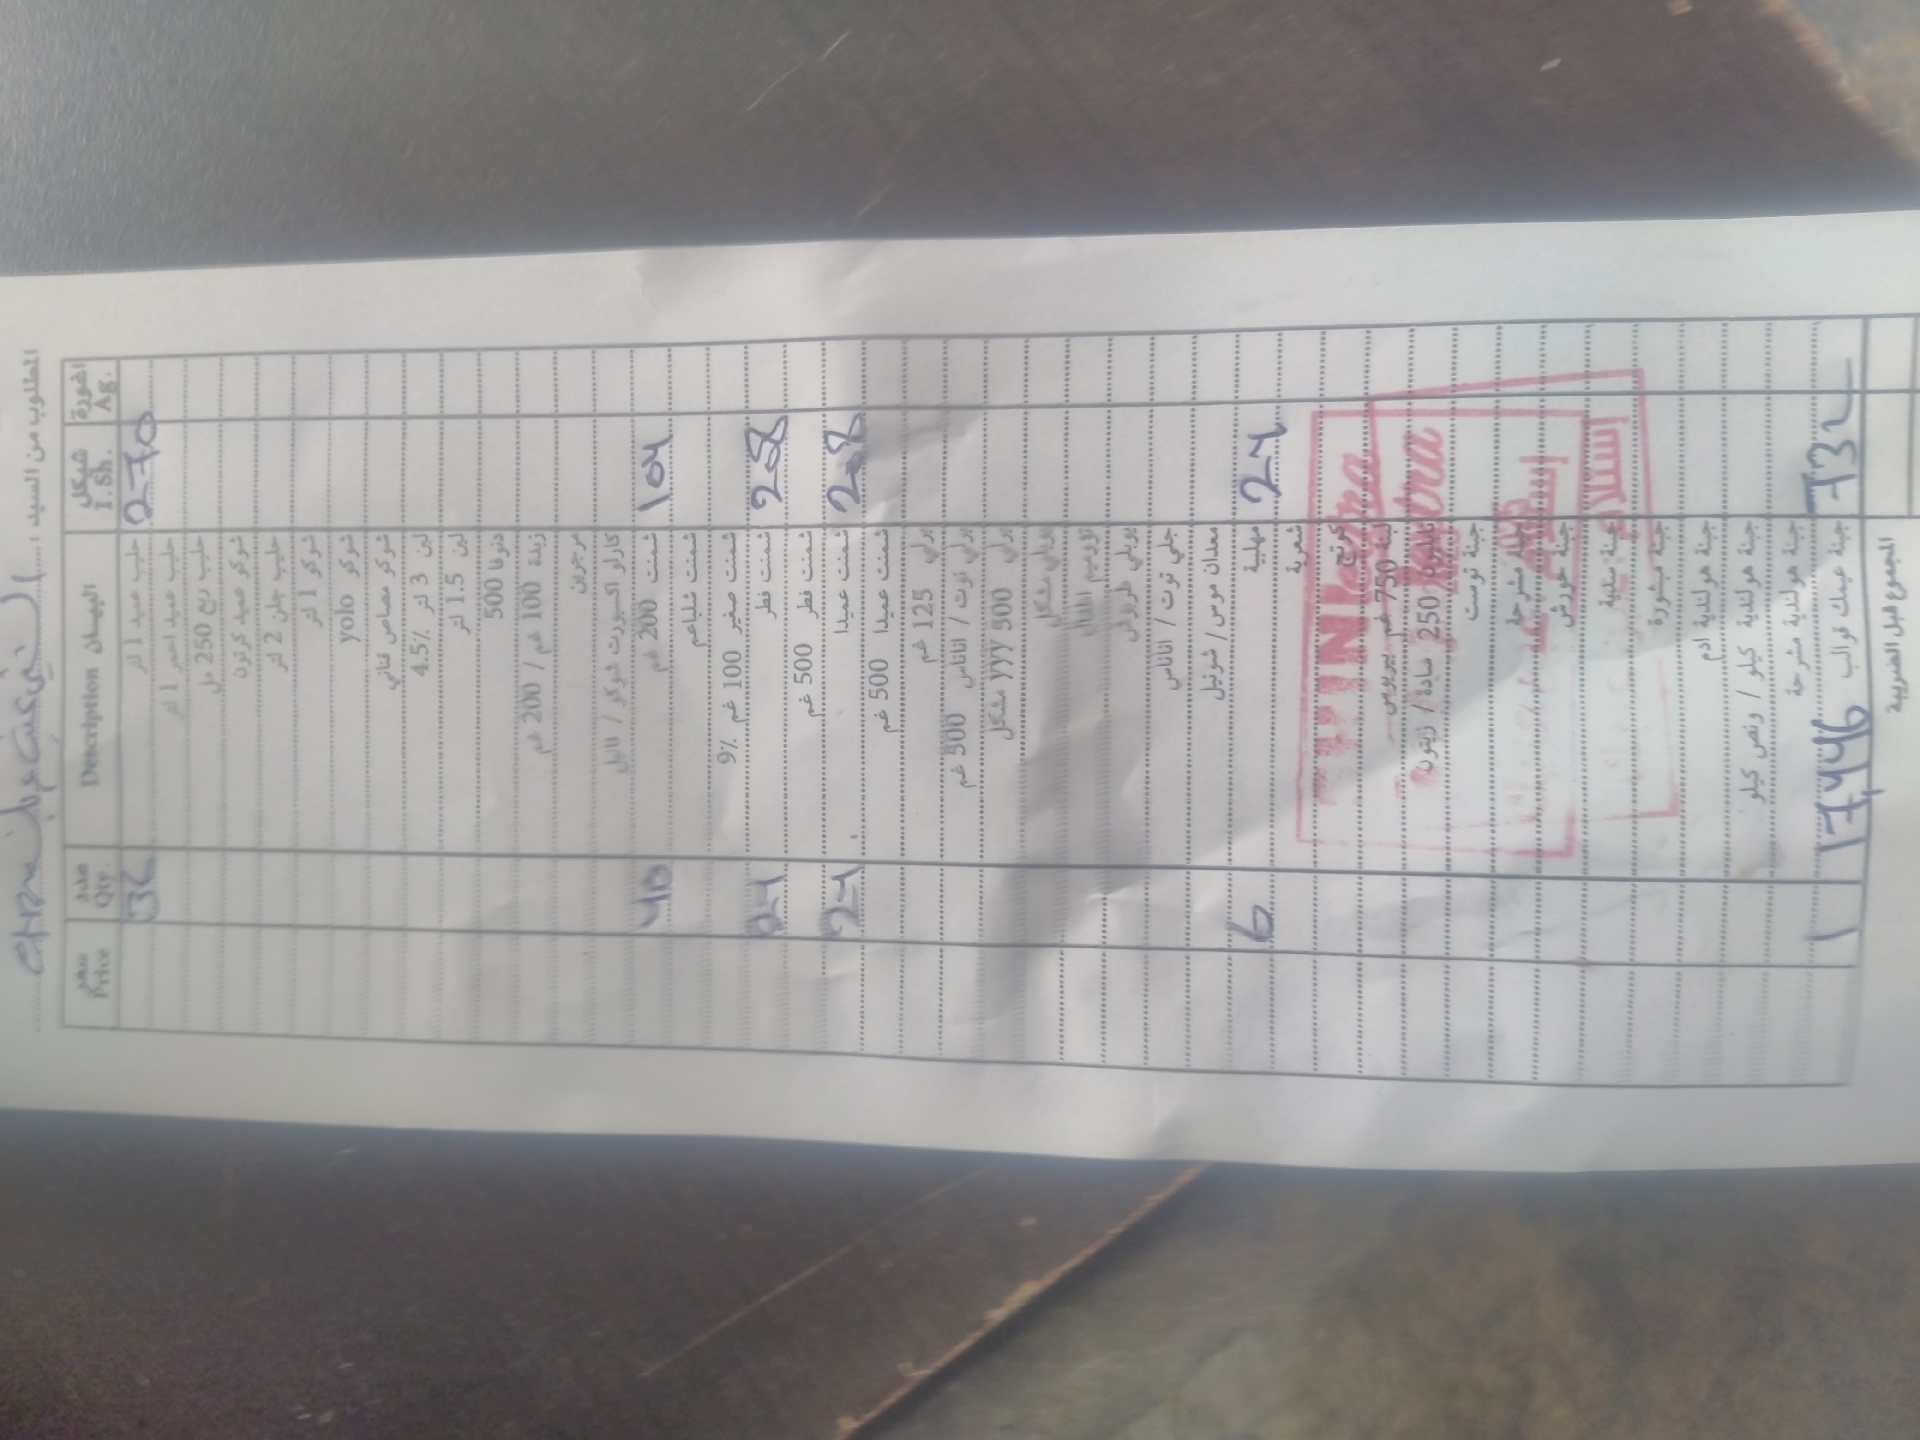 المطلوب من السيد :
سعر عدد البيان Description شيكل اغورة
Price Qty. I. Sh. Ag.
36 حليب عميد 1 لتر 270
حليب عميد احمر 1 لتر
حليب ربع 250 مل
شوكو عميد كرتون
حليب جلن 2 لتر
شوكو 1 لتر
شوكو yolo
شوكو مصاص قناني
لبن 3 لتر 4.5%
لبن 1.5 لتر
دنونا 500
زبدة 100 غم / 200 غم
مرجرين
كارلو اكسبورت شوكو /
40 شمنت 200 غم 104
شمنت شلباعم
شمنت صغير 100 غم 9%
24 شمنت قطر 208
شمنت قطر 500 غم
24 شمنت عميدا 208
شمنت عميدا 500 غم
برلي 125 غم
برلي توت / اناناس 500 غم
برلي 500 yyy مشكل
يوبلي مشكل
يوبلي
جلي توت / اناناس
معدان موس / شونيل
6 مهلبية 24
شعرية
كوتج
لبنة 750 غم بيريوس
250 سادة / زيتون
جبنة توست
جبنة مشرحة
جبنة
جبنة
جبنة مبشورة
جبنة هولندية ادم
جبنة هولندية كيلو / ونص كيلو
جبنة هولندية مشرحة
1 17,446 جبنة عيمك قوالب 732
المجموع قبل الضريبة